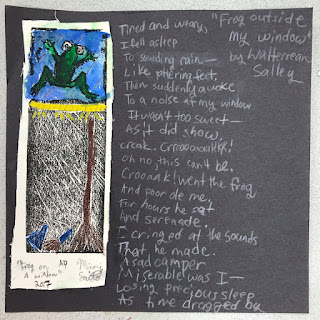 "Frog outside
my window"
by Walterrean
Salley
Tired and weary,
I fell asleep
To sounding rain—
Like pittering feet.
Then suddenly awoke
To a noise at my window
It wasn't too sweet—
As it did show,
creak. Crrroooooakk!
oh no, this can't be.
Crooonk! went the frog
And poor de me,
For hours he sat
And serenade.
I cringed at the sounds
That he made.
A sad camper
Miserable was I—
Losing precious sleep
As time dragged by
"Frog on
A window"
2017
AP